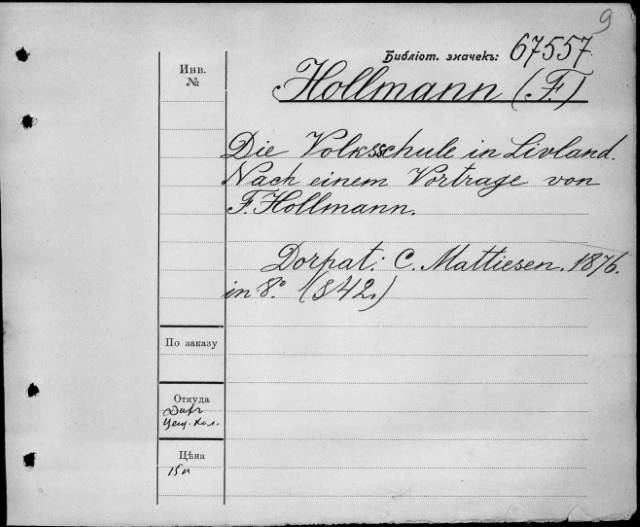 9
Библіот. значекъ: 67557
Инв.
№
Hollmann (F.)
Die Volksschule in Livland.
Nach einem Vortrage von
F. Hollmann.
Dorpat: C. Mattiesen. 1876.
in 8º. (S 42.)
По заказу
Откуда
Ценз. Кол.
Цѣна
15 к